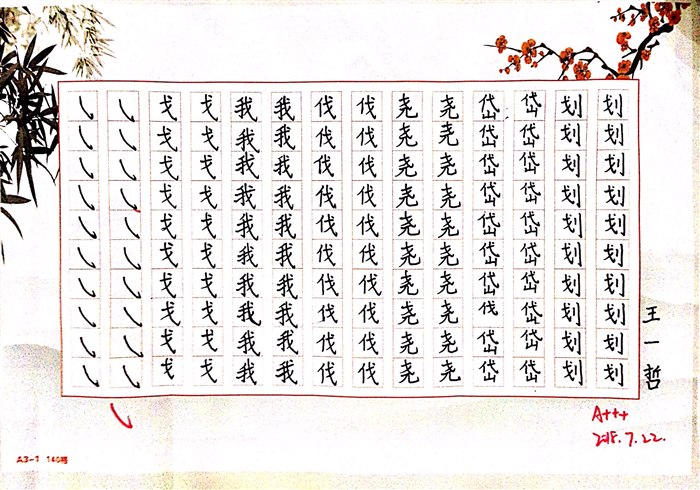 划划划划划划划划划划
划划划划划划划划划划
岱岱岱岱岱岱岱岱岱岱
岱岱岱岱岱岱岱伐岱岱
尧尧尧尧尧尧尧尧尧尧
尧尧尧尧尧尧尧尧尧尧
伐伐伐伐伐伐伐伐伐伐
伐伐伐伐伐伐伐伐伐伐
我我我我我我我我我我
我我我我我我我我我我
戈戈戈戈戈戈戈戈戈戈
戈戈戈戈戈戈戈戈戈戈
㇂㇂㇂㇂㇂㇂㇂㇂㇂㇂
㇂㇂㇂㇂㇂㇂㇂㇂㇂㇂
王一哲
㇂
A+++
2018.7.22.
A3-1 140格